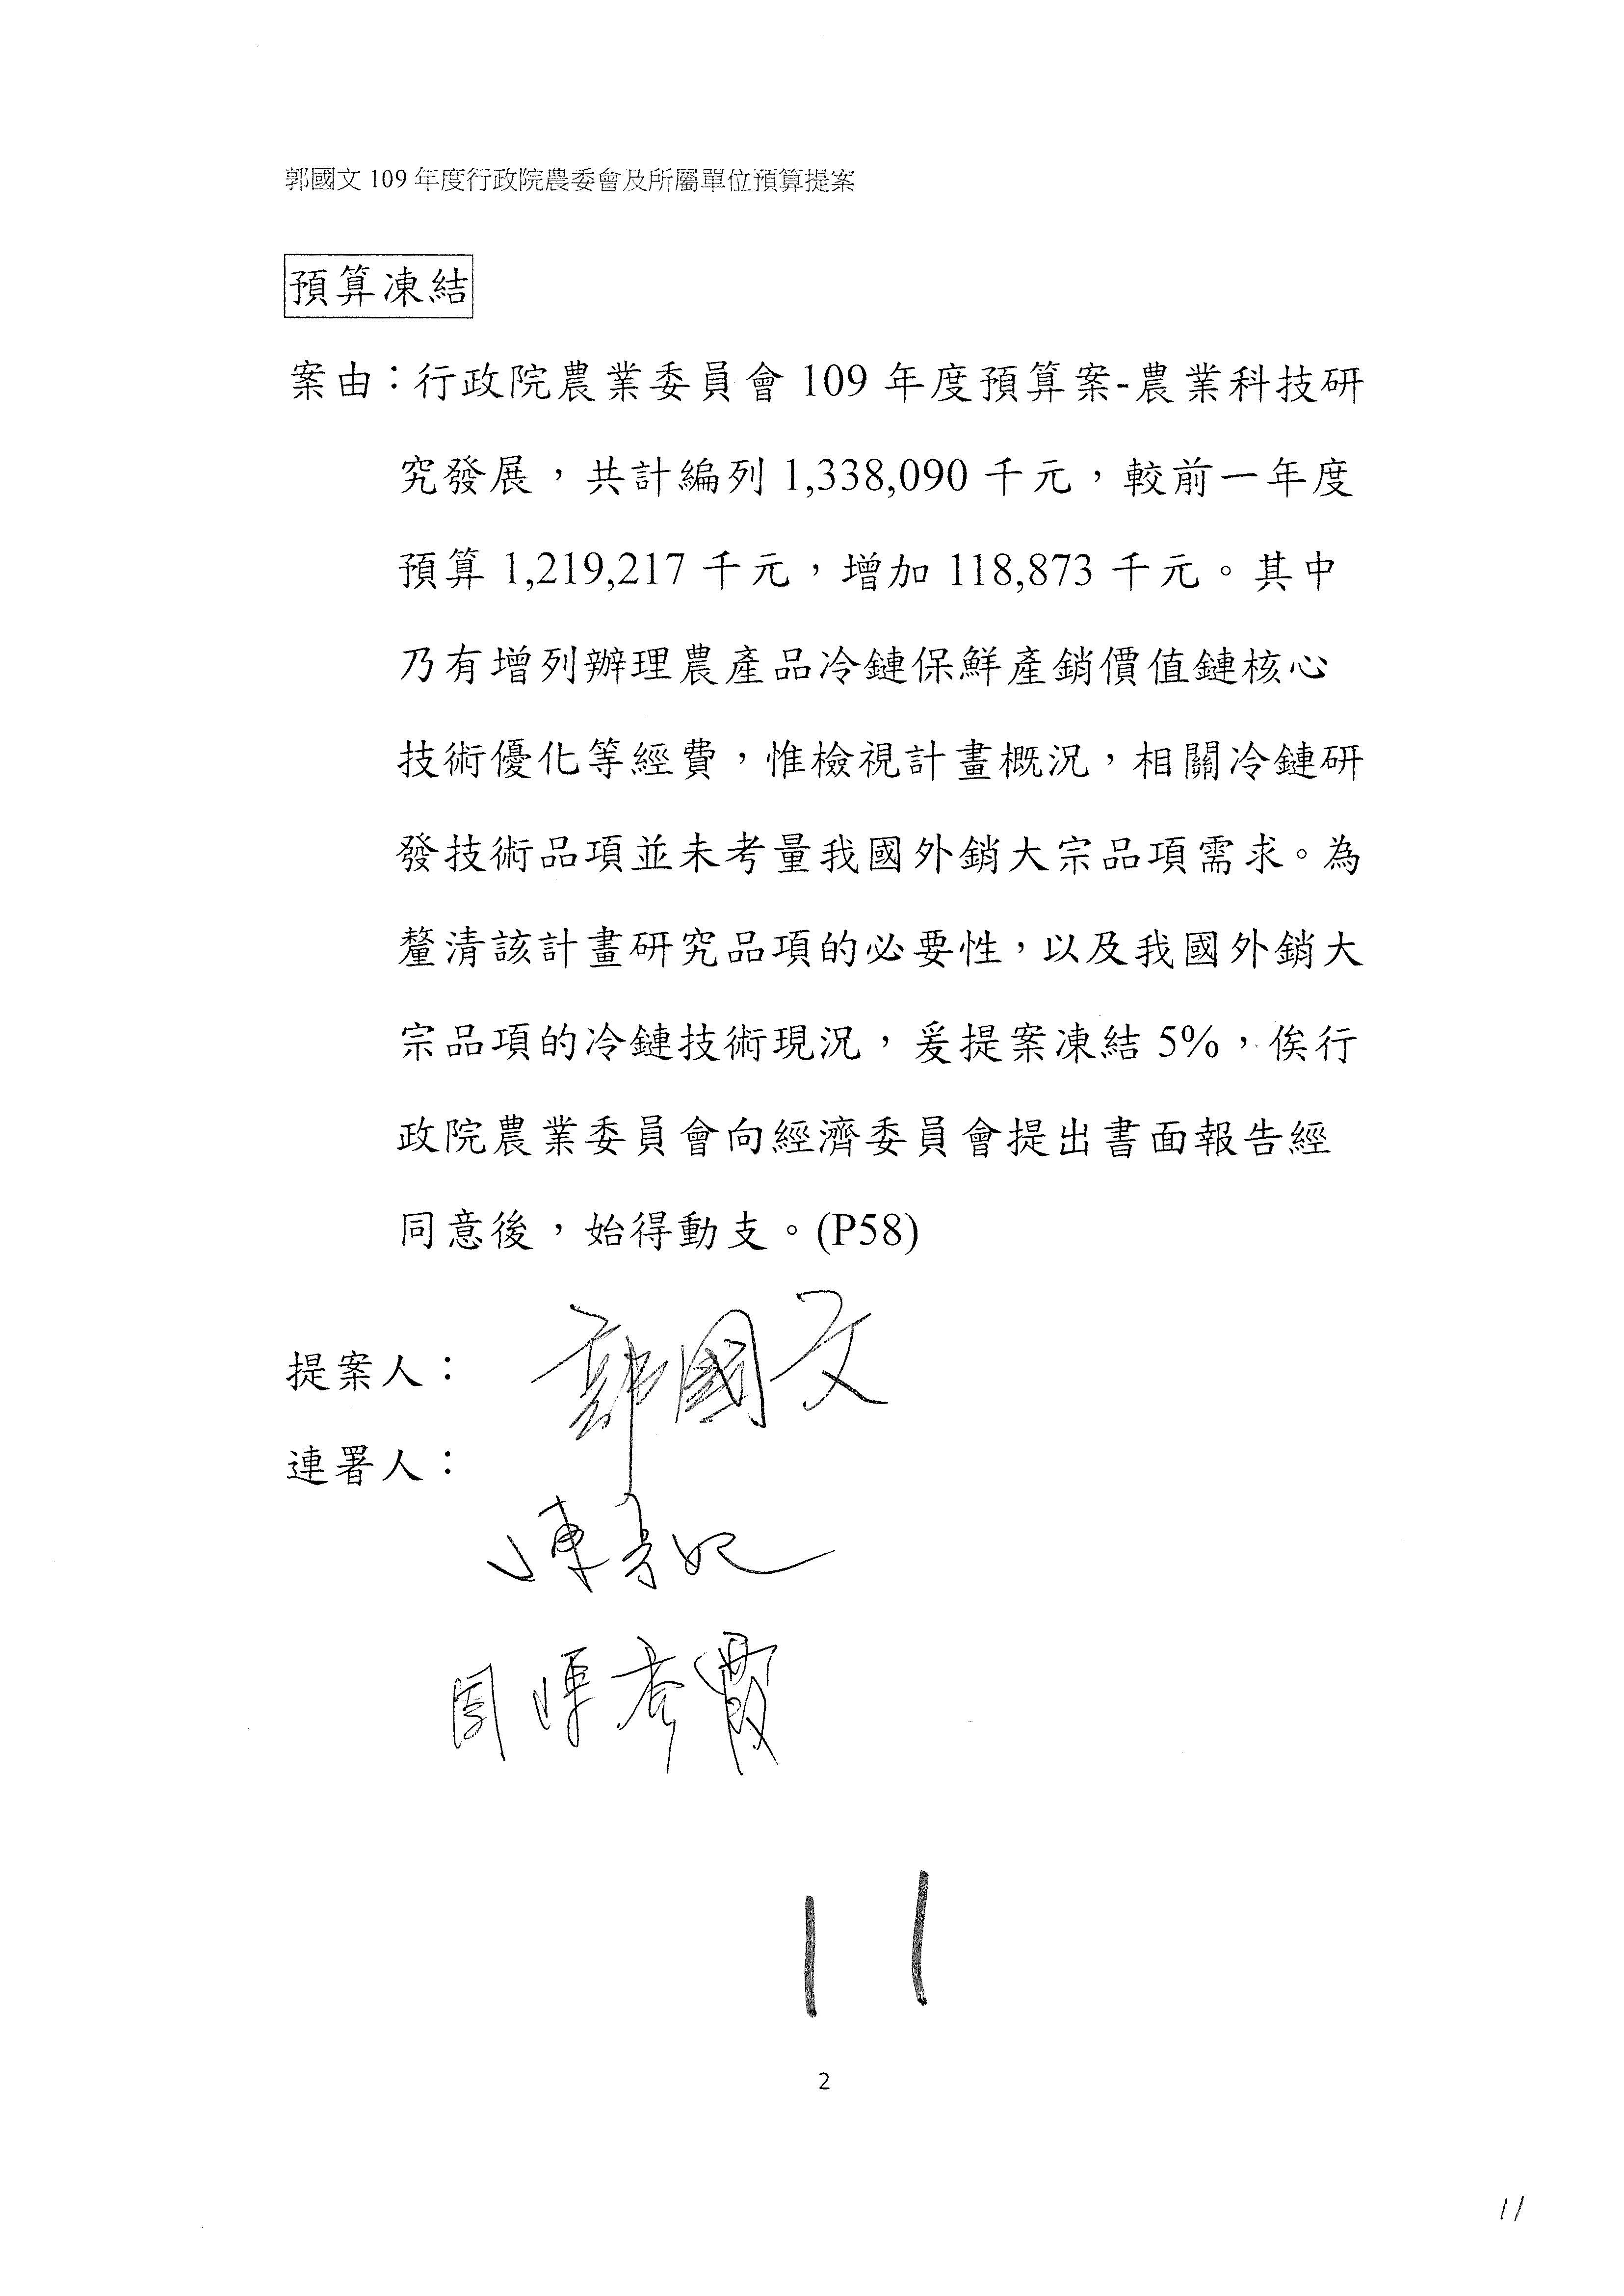 郭國文 109 年度行政院農委會及所屬單位預算提案
預算凍結
案由：行政院農業委員會 109 年度預算案-農業科技研
究發展，共計編列 1,338,090 千元，較前一年度
預算 1,219,217 千元，增加 118,873 千元。其中
乃有增列辦理農產品冷鏈保鮮產銷價值鏈核心
技術優化等經費，惟檢視計畫概況，相關冷鏈研
發技術品項並未考量我國外銷大宗品項需求。為
釐清該計畫研究品項的必要性，以及我國外銷大
宗品項的冷鏈技術現況，爰提案凍結 5%，俟行
政院農業委員會向經濟委員會提出書面報告經
同意後，始得動支。(P58)
提案人： 郭國文
連署人：
陳亭妃
周陳秀霞
11
2
11